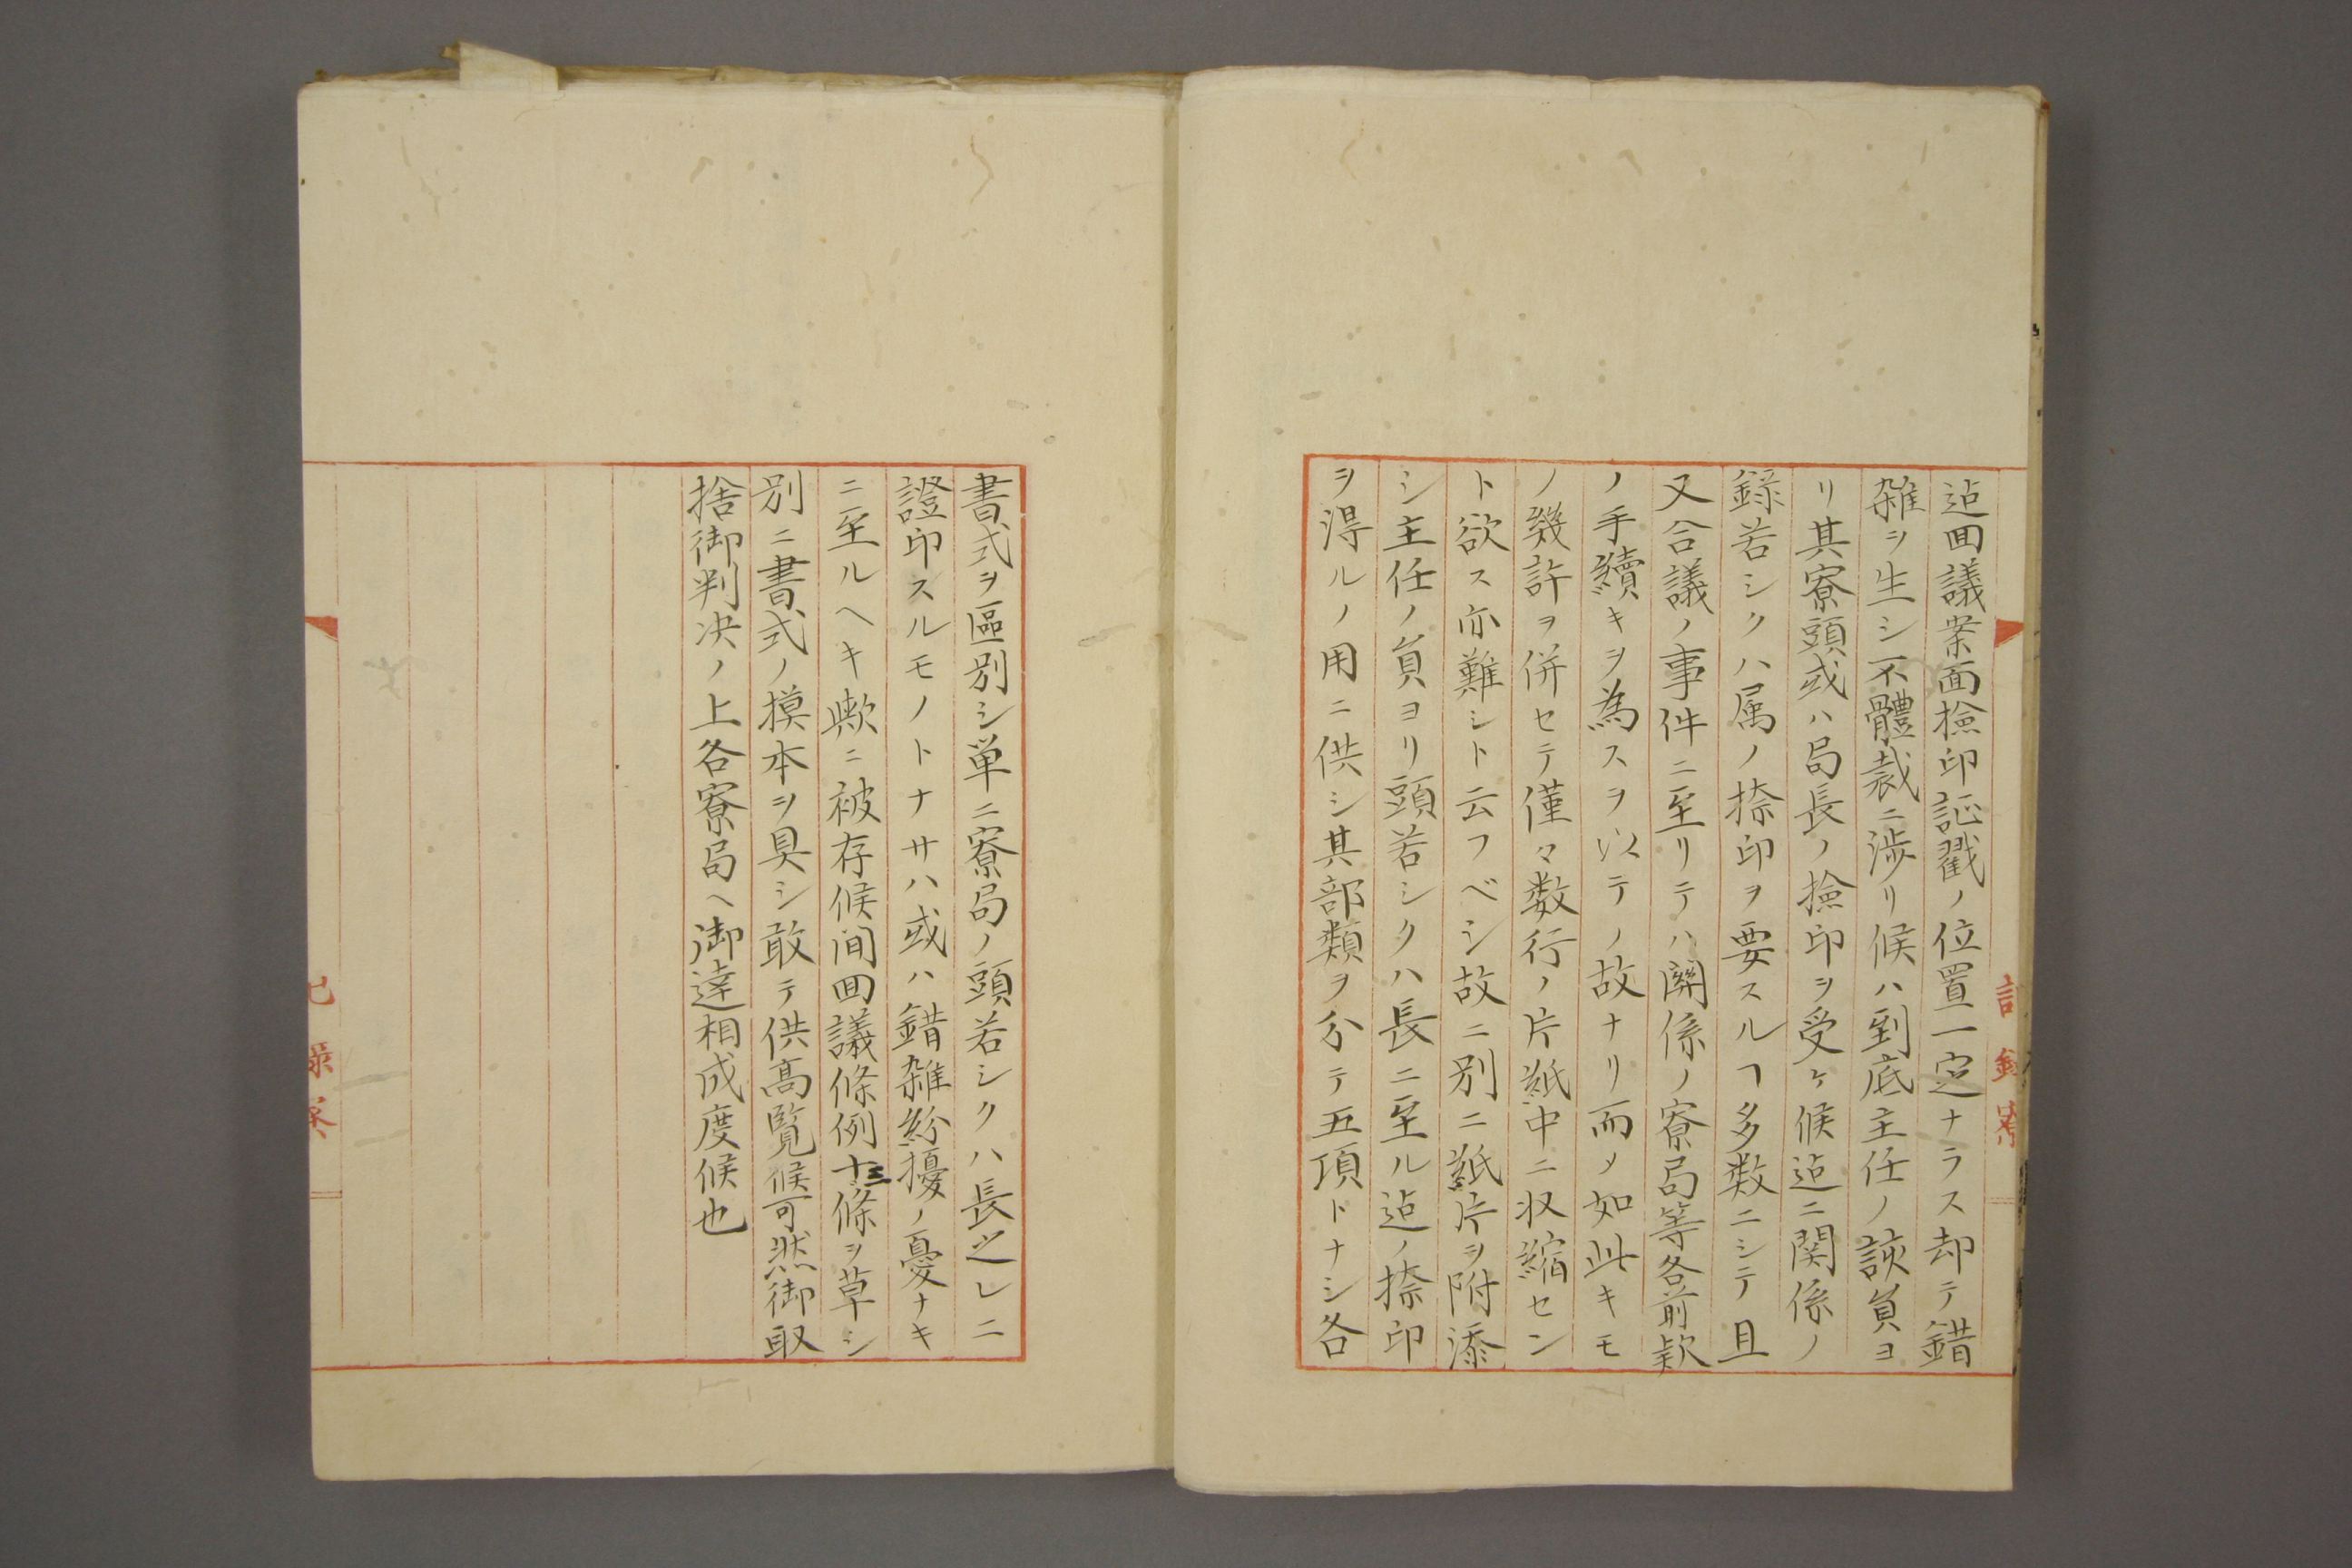 迠回議案面撿印証戳ノ位置一定ナラス却テ錯
雑ヲ生シ不體裁ニ渉リ候ハ到底主任ノ該負ヨ
リ其寮頭或ハ局長ノ撿印ヲ受ケ候迠ニ関係ノ
録若シクハ属ノ捺印ヲ要スルヿ多数ニシテ且
又合議ノ事件ニ至リテハ關係ノ寮局等各前款
ノ手續キヲ為スヲ以テノ故ナリ而メ如此キモ
ノ幾許ヲ併セテ僅々数行ノ片紙中ニ収縮セン
ト欲ス亦難シト云フベシ故ニ別ニ紙片ヲ附添
シ主任ノ負ヨリ頭若シクハ長ニ至ル迠ノ捺印
ヲ得ルノ用ニ供シ其部類ヲ分テ五項トナシ各
記録寮
書式ヲ區別シ単ニ寮局ノ頭若シクハ長之レニ
證印スルモノトナサハ或ハ錯雑紛擾ノ憂ナキ
ニ至ルヘキ歟ニ被存候間回議條例十三條ヲ草シ
別ニ書式ノ摸本ヲ具シ敢テ供高覧候可然御取
捨御判决ノ上各寮局ヘ御達相成度候也